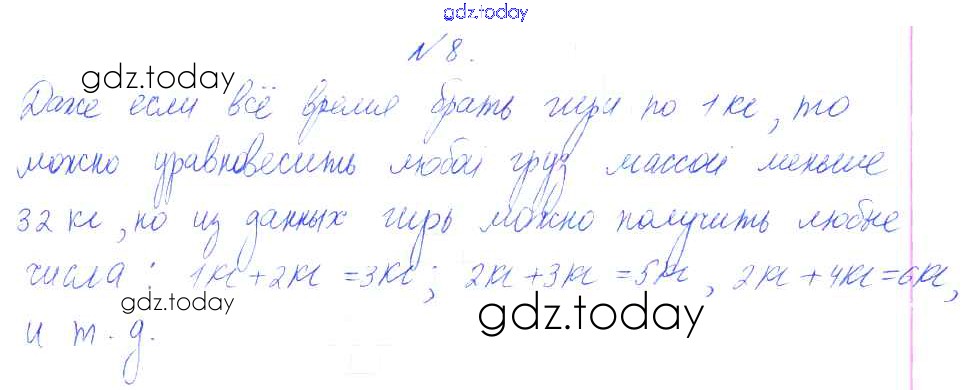 gdz.today
№8.
gdz.today
Даже если всё время брать гири по 1 кг, то
можно уравновесить любой груз массой меньше
32 кг, но из данных гирь можно получить любые
числа: 1кг+2кг=3кг; 2кг+3кг=5кг, 2кг+4кг=6кг,
и т.д.
gdz.today